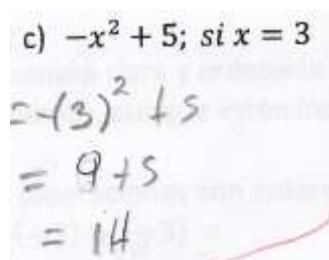 c) −x² + 5; si x = 3
= -(3)² + 5
= 9 + 5
= 14